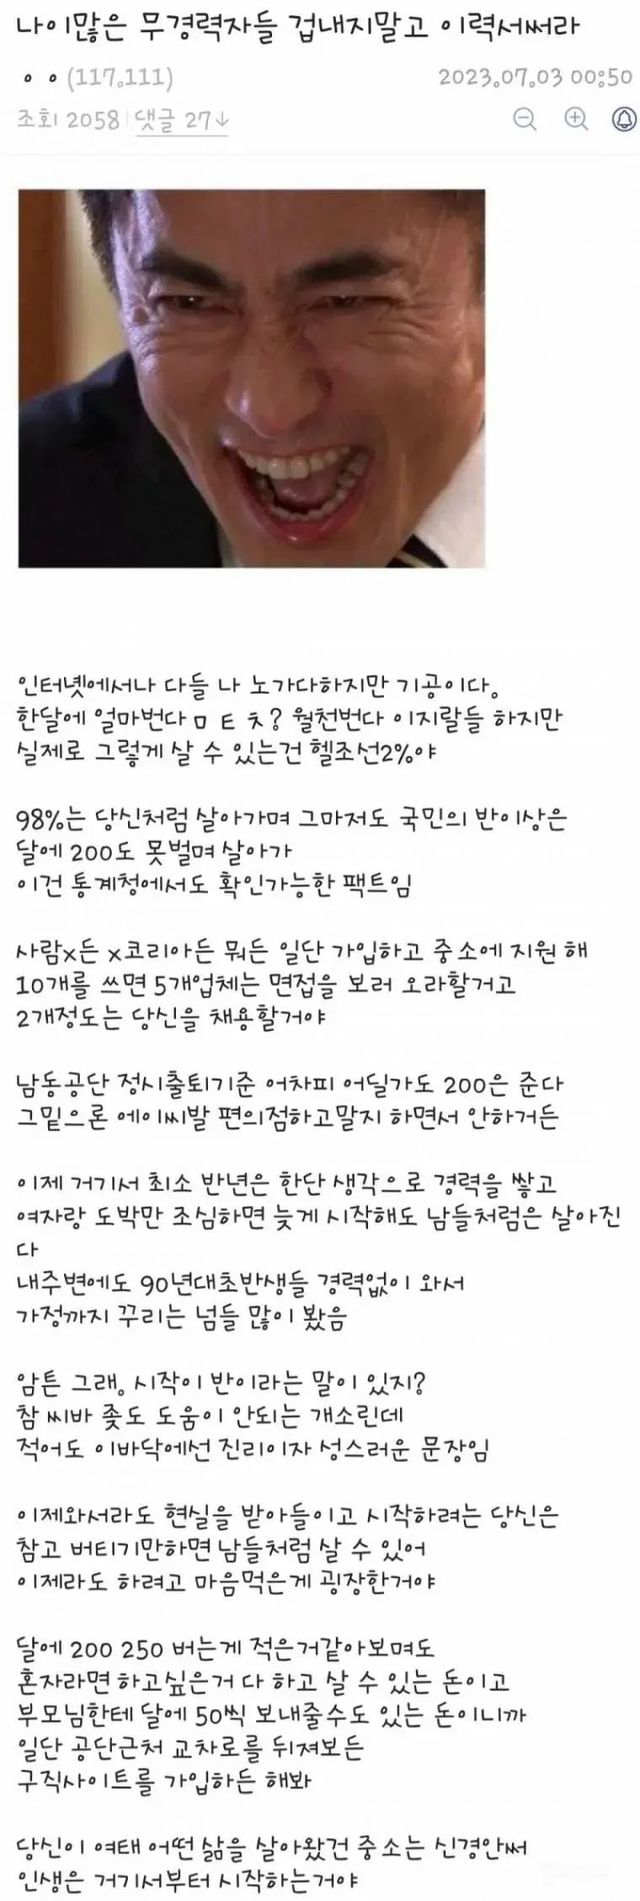 나이많은 무경력자들 겁내지말고 이력서써라
ㅇㅇ(117.111)
2023.07.03 00:50
조회 2058
댓글 27↓
인터넷에서나 다들 나 노가다하지만 기공이다.
한달에 얼마번다 ㅁㅌㅊ? 월천번다 이지랄들 하지만
실제로 그렇게 살 수 있는건 헬조선2%야
98%는 당신처럼 살아가며 그마저도 국민의 반이상은
달에 200도 못벌며 살아가
이건 통계청에서도 확인가능한 팩트임
사람x든 x코리아든 뭐든 일단 가입하고 중소에 지원 해
10개를 쓰면 5개업체는 면접을 보러 오라할거고
2개정도는 당신을 채용할거야
남동공단 정시출퇴기준 어차피 어딜가도 200은 준다
그밑으론 에이씨발 편의점하고말지 하면서 안하거든
이제 거기서 최소 반년은 한단 생각으로 경력을 쌓고
여자랑 도박만 조심하면 늦게 시작해도 남들처럼은 살아진
다
내주변에도 90년대초반생들 경력없이 와서
가정까지 꾸리는 넘들 많이 봤음
암튼 그래. 시작이 반이라는 말이 있지?
참 씨바 좆도 도움이 안되는 개소린데
적어도 이바닥에선 진리이자 성스러운 문장임
이제와서라도 현실을 받아들이고 시작하려는 당신은
참고 버티기만하면 남들처럼 살 수 있어
이제라도 하려고 마음먹은게 굉장한거야
달에 200 250 버는게 적은거같아보며도
혼자라면 하고싶은거 다 하고 살 수 있는 돈이고
부모님한테 달에 50씩 보내줄수도 있는 돈이니까
일단 공단근처 교차로를 뒤져보든
구직사이트를 가입하든 해봐
당신이 여태 어떤 삶을 살아왔건 중소는 신경안써
인생은 거기서부터 시작하는거야